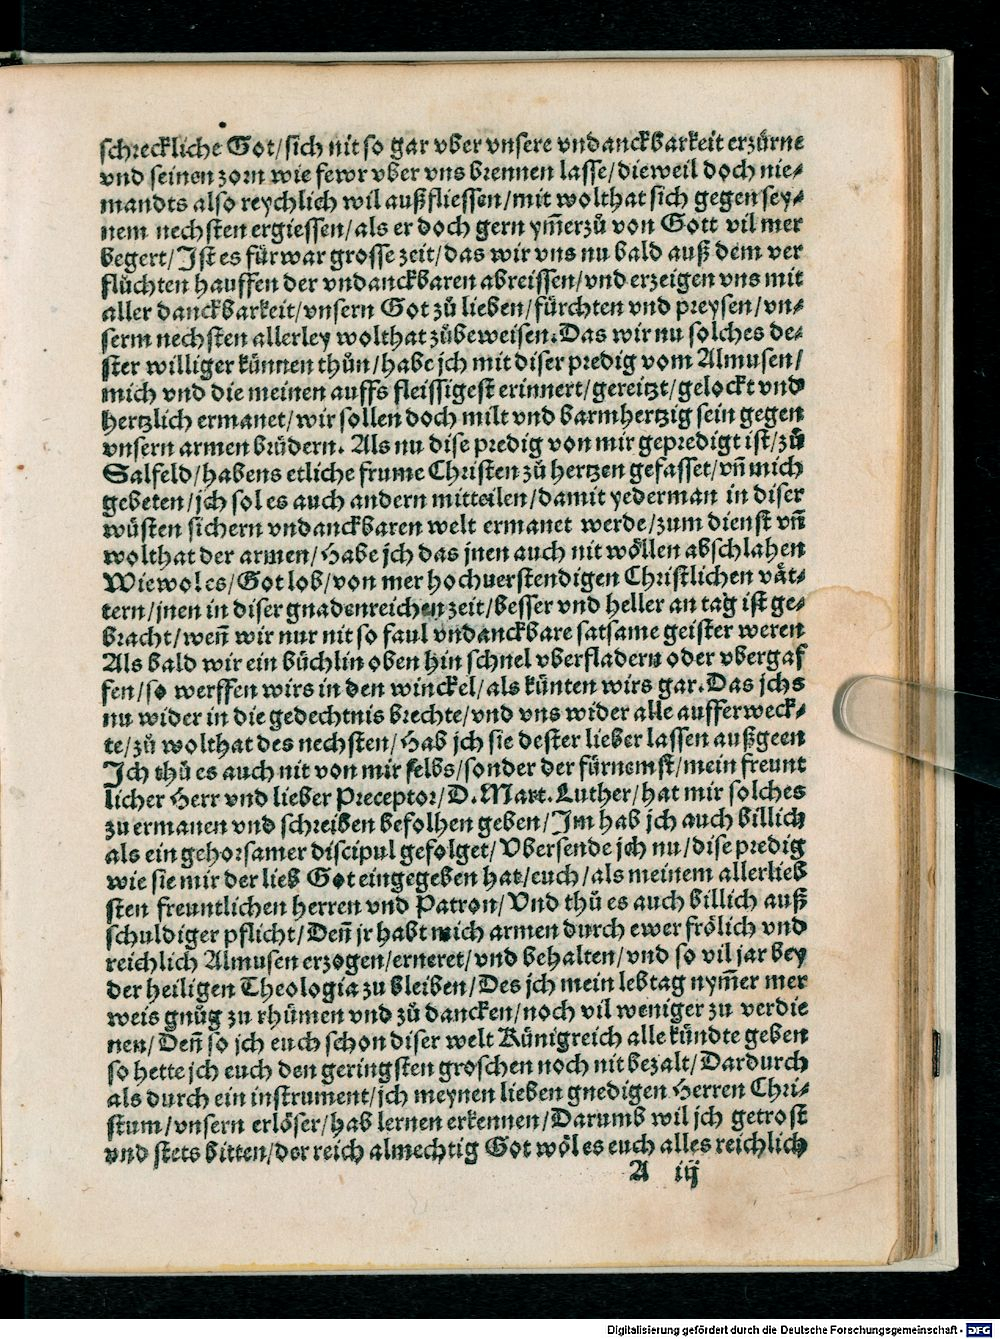 schreckliche Got/sich nit so gar vber vnsere vndanckbarkeit erzürne
vnd seinen zorn wie fewr vber vns brennen lasse/dieweil doch nie-
mandts also reychlich wil außfliessen/mit wolthat sich gegen sey-
nem nechsten ergiessen/als er doch gern ym̃erzů von Gott vil mer
begert/Ist es fürwar grosse zeit/das wir vns nu bald auß dem ver
flůchten hauffen der vndanckbaren abreissen/vnd erzeigen vns mit
aller danckbarkeit/vnsern Got zů lieben/fürchten vnd preysen/vn-
serm nechsten allerley wolthat zůbeweisen. Das wir nu solches de-
ster williger künnen thůn/habe jch mit diser predig vom Almusen/
mich vnd die meinen auffs fleissigest erinnert/gereitzt/gelockt vnd
hertzlich ermanet/wir sollen doch milt vnd barmhertzig sein gegen
vnsern armen brüdern. Als nu dise predig von mir gepredigt ist/zů
Salfeld/habens etliche frume Christen zů hertzen gefasset/vñ mich
gebeten/jch sol es auch andern mitteilen/damit yederman in diser
wüsten sichern vndanckbaren welt ermanet werde/zum dienst vñ
wolthat der armen/Habe jch das jnen auch nit wöllen abschlahen
Wiewol es/Got lob/von mer hochuerstendigen Christlichen vät-
tern/jnen in diser gnadenreichen zeit/besser vnd heller an tag ist ge-
bracht/weñ wir nur nit so faul vndanckbare satsame geister weren
Als bald wir ein büchlin oben hin schnel vberfladern oder vbergaf
fen/so werffen wirs in den winckel/als künten wirs gar. Das jchs
nu wider in die gedechtnis brechte/vnd vns wider alle aufferweck-
te/zů wolthat des nechsten/Hab jch sie dester lieber lassen außgeen
Ich thů es auch nit von mir selbs/sonder der fürnemst/mein freunt
licher Herr vnd lieber Preceptor/D. Mart. Luther/hat mir solches
zu ermanen vnd schreiben befolhen geben/Im hab jch auch billich
als ein gehorsamer discipul gefolget/Vbersende jch nu/dise predig
wie sie mir der lieb Got eingegeben hat/euch/als meinem allerlieb
sten freuntlichen herren vnd Patron/Vnd thů es auch billich auß
schuldiger pflicht/Deñ jr habt mich armen durch ewer frölich vnd
reichlich Almusen erzogen/erneret/vnd behalten/vnd so vil jar bey
der heiligen Theologia zu bleiben/Des jch mein lebtag nym̃er mer
weis gnůg zu rhümen vnd zů dancken/noch vil weniger zu verdie
nen/Deñ so jch euch schon diser welt Künigreich alle kündte geben
so hette jch euch den geringsten groschen noch nit bezalt/Dardurch
als durch ein instrument/jch meynen lieben gnedigen Herren Chri-
stum/vnsern erlöser/hab lernen erkennen/Darumb wil jch getrost
vnd stets bitten/der reich almechtig Got wöl es euch alles reichlich
A iij
Digitalisierung gefördert durch die Deutsche Forschungsgemeinschaft - DFG